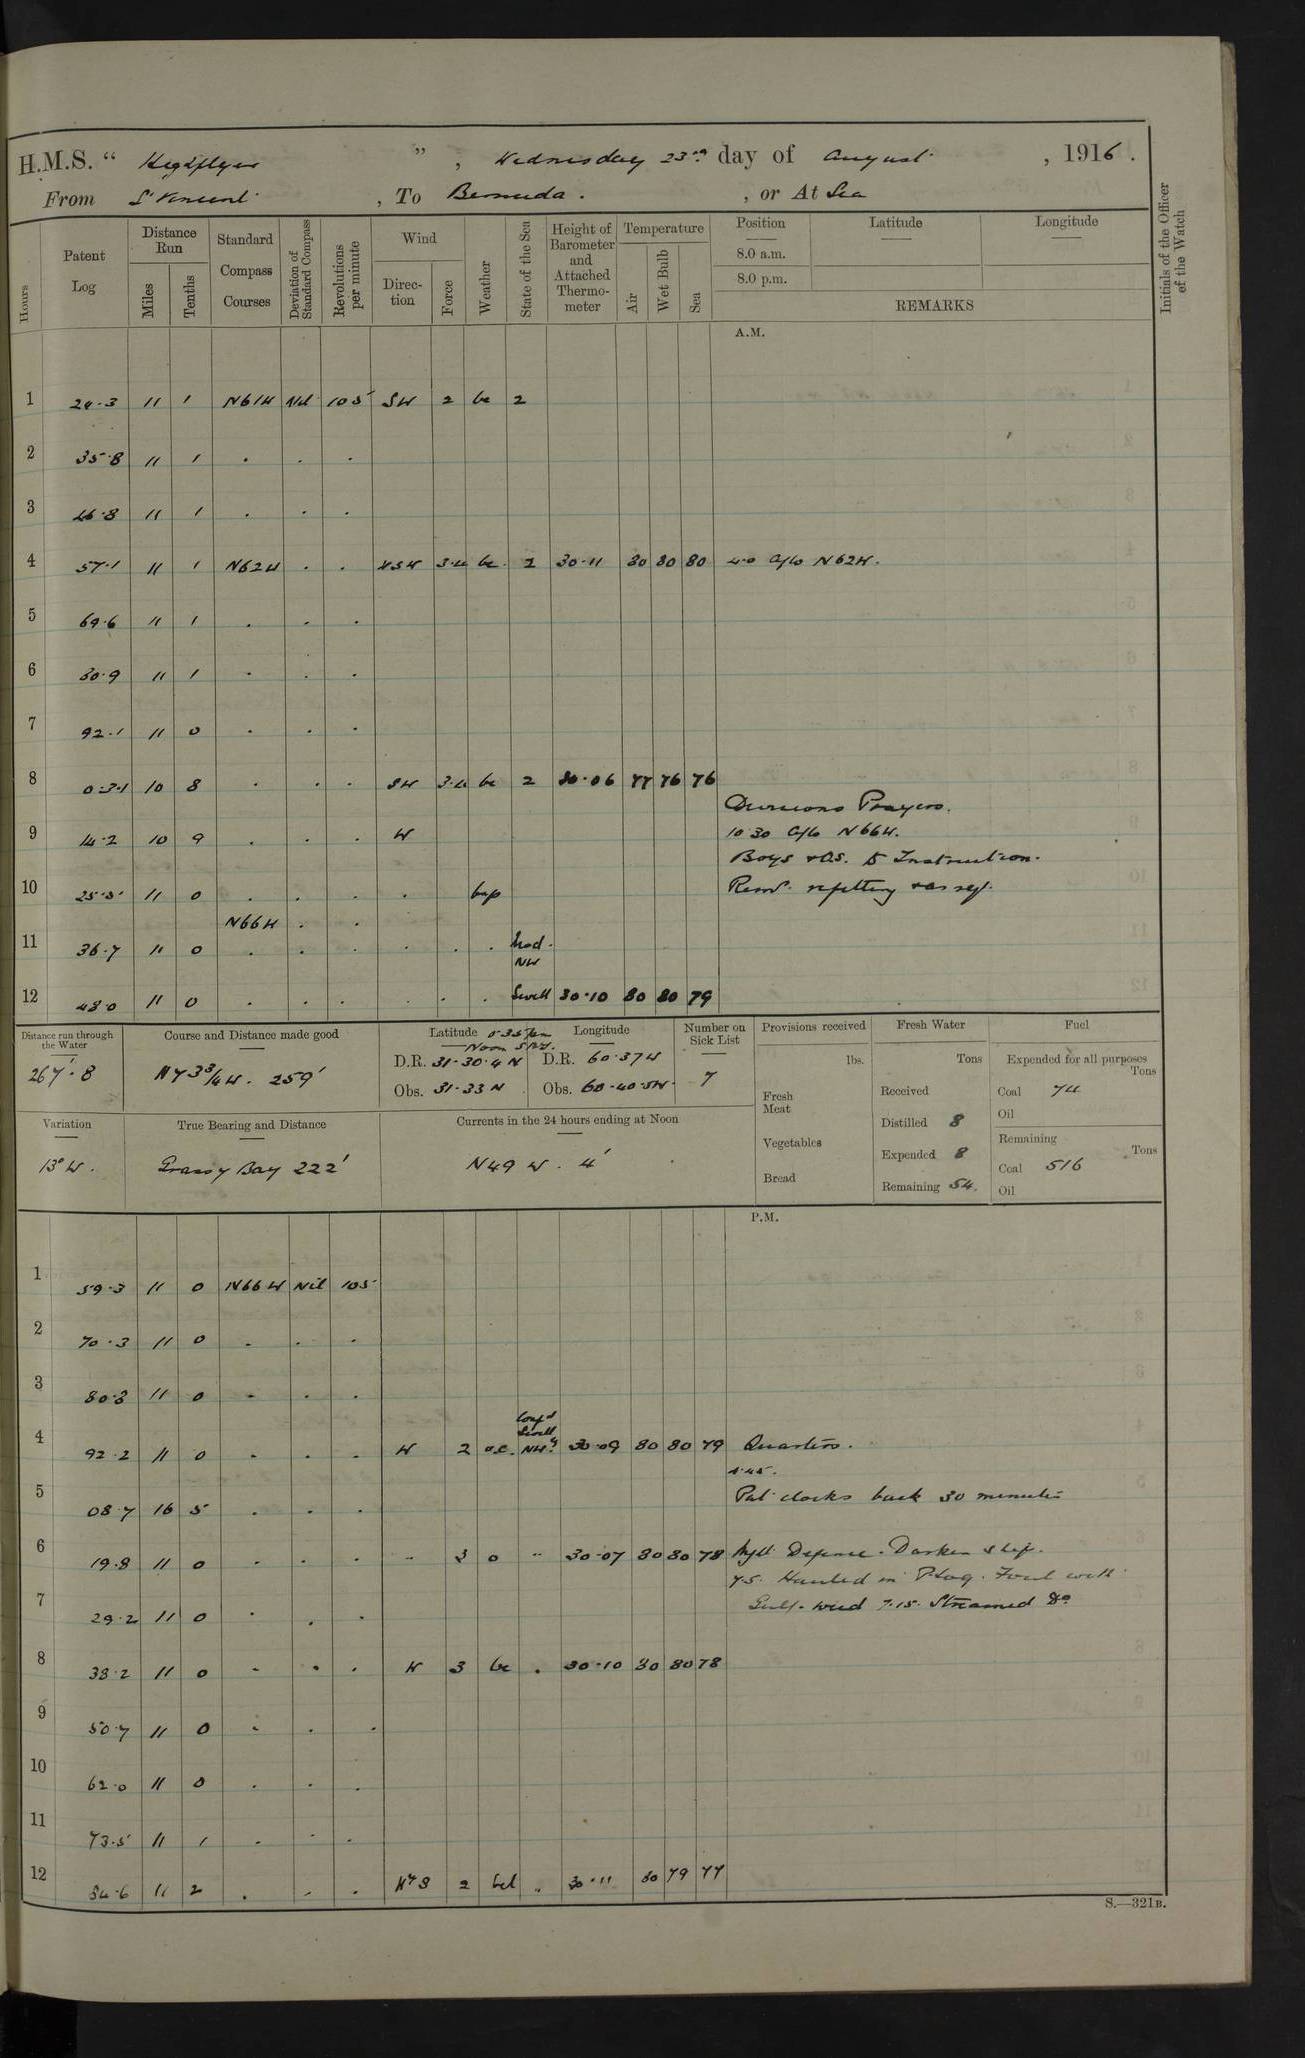 H.M.S. " Highflyer ", Wednesday 23rd day of August, 1916.
From St Vincent, To Bermuda. , or At Sea
Hours
Patent Log
Distance Run
Miles
Tenths
Standard Compass Courses
Deviation of Standard Compass
Revolutions per minute
Wind
Direction
Force
Weather
State of the Sea
Height of Barometer and Attached Thermometer
Temperature
Air
Wet Bulb
Sea
Position
8.0 a.m.
8.0 p.m.
Latitude
Longitude
REMARKS
Initials of the Officer of the Watch
A.M.
1 24.3 11 1 N61W Nil 105 SW 2 bc 2
2 35.8 11 1 . . .
3 46.8 11 1 . . .
4 57.1 11 1 N62W . . WSW 3.4 bc. 2 30.11 80 80 80 4.0 A/Co N62W.
5 69.6 11 1 . . .
6 80.9 11 1 . . .
7 92.1 11 0 . . .
8 0 3.1 10 8 . . . SW 3.4 bc 2 30.06 77 76 76
Divisions Prayers.
9 14.2 10 9 . . . W 10 30 A/Co N66W.
Boys & OS. to Instruction.
10 25.5 11 0 . . . . bcp Remr. refitting & as req.
N66W . .
11 36.7 11 0 . . . . . . Mod.
NW
12 48.0 11 0 . . . . . . Swell 30.10 80 80 79
Distance run through the Water
267'.8
Course and Distance made good
N73¾W. 259'
Latitude Longitude
Noon
D.R. 31-30.4 N D.R. 60.37W
Obs. 31-33 N Obs. 60-40.5W.
Number on Sick List
7
Provisions received
lbs.
Fresh Meat
Vegetables
Bread
Fresh Water
Tons
Received
Distilled 8
Expended 8
Remaining 54.
Fuel
Expended for all purposes
Tons
Coal 74
Oil
Remaining
Tons
Coal 516
Oil
Variation
13° W.
True Bearing and Distance
Grassy Bay 222'
Currents in the 24 hours ending at Noon
N49 W. 4'
P.M.
1 59.3 11 0 N66W Nil 105
2 70.3 11 0 . . .
3 80.8 11 0 . . .
Conf'd
Swell
4 92.2 11 0 . . . W 2 o.c. NW'ly 30.09 80 80 79 Quarters.
4.45.
5 08.7 16 5 . . . Put clocks back 30 minutes
6 19.8 11 0 . . . .. 3 o .. 30.07 80 80 78 Night Defence. Darken ship.
7.5. Hauled in P.Log. Foul with
7 29.2 11 0 . . . Gulf-weed 7.15. Streamed Do
8 38.2 11 0 . . . W 3 bc . 30.10 80 80 78
9 50.7 11 0 . . .
10 62.0 11 0 . . .
11 73.5 11 1 . . .
12 84.6 11 2 . . . WxS 2 bcl .. 30.11 80 79 77
S.—321B.